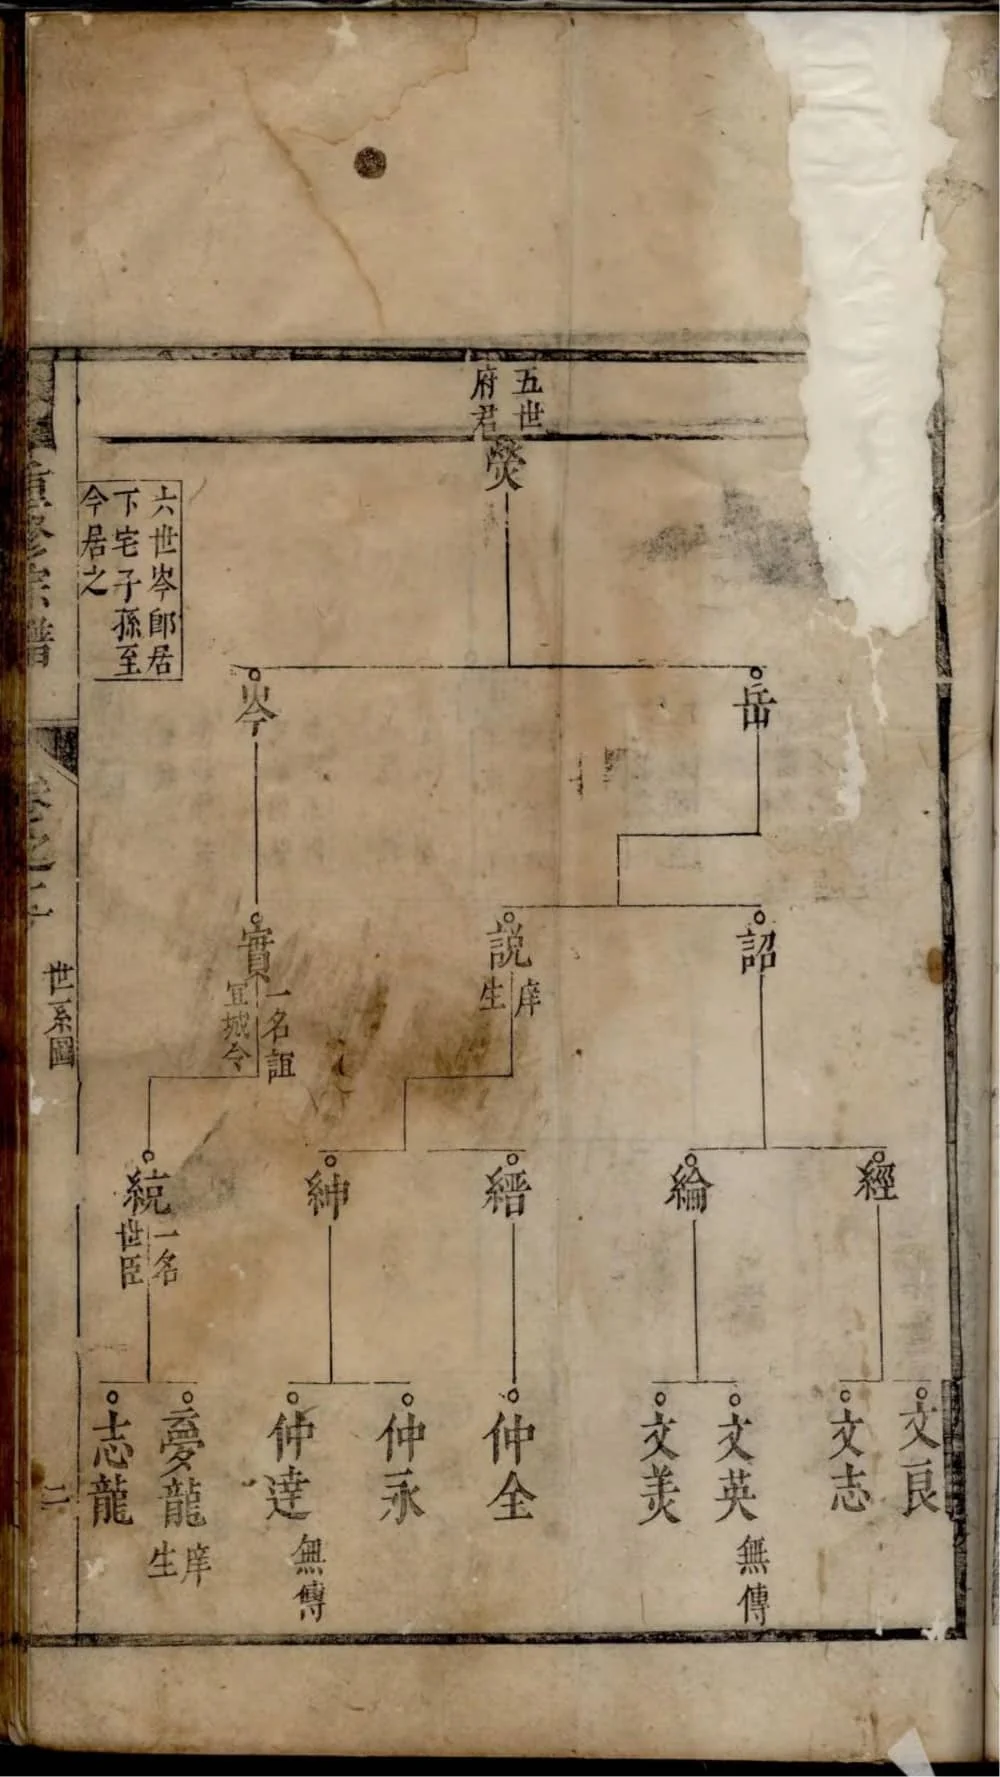 五世
府君
熒
岳
岑
六世岑郎居
下宅子孫至
今居之
詔
説
庠
生
實
一名誼
宜城令
經
綸
縉
紳
統
一名
世臣
文良
文志
文英
無傳
文美
仲全
仲永
仲達
無傳
夢龍
庠
生
志龍
重修宗譜
卷之
世系圖
二